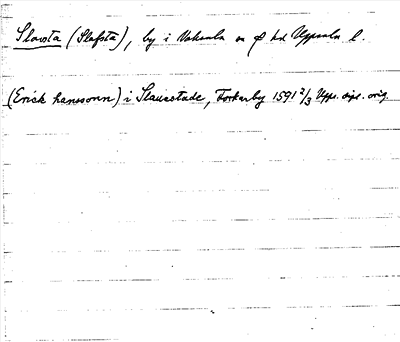 Slavsta (Slafsta), by i Vaksala sn o hd Uppsala l.
(Erick hanssonn) i Slauestade, Torkarby 1591 2/3 Upps. dipl. orig.